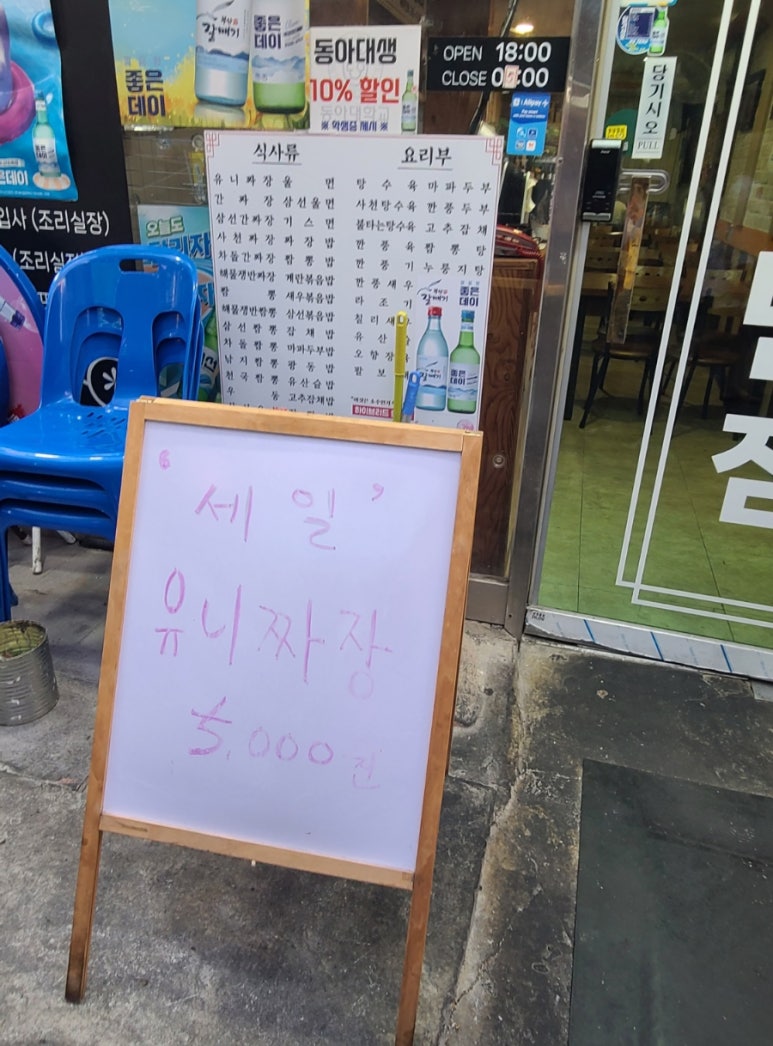 부산
갈매기
좋은
데이
좋은
데이
동아대생
10% 할인
동아대학교
※ 학생증 제시 ※
OPEN 18:00
CLOSE 0
Alipay
당기시오
PULL
식사류
요리부
유니짜장 울면
간짜장 삼선울면
삼선간짜장 기스면
사천짜장 짜장밥
차돌간짜장 짬뽕밥
해물쟁반짜장 계란볶음밥
짬뽕 새우볶음밥
해물쟁반짬뽕 삼선볶음밥
삼선짬뽕 잡채밥
차돌짬뽕 마파두부밥
낙지짬뽕 광동밥
전국짬뽕 유산슬밥
우동 고추잡채밥
탕수육 마파두부
사천탕수육 깐풍두부
불타는탕수육 고추잡채
깐풍육 짬뽕탕
깐풍기 누룽지탕
깐풍새우
라조기
칠리새
유산
오향장
팔보
갈매기
좋은
데이
하이브리드
입사 (조리실장)
(조리실
오늘도
은데이
점
‘세일’
유니짜장
5,000원